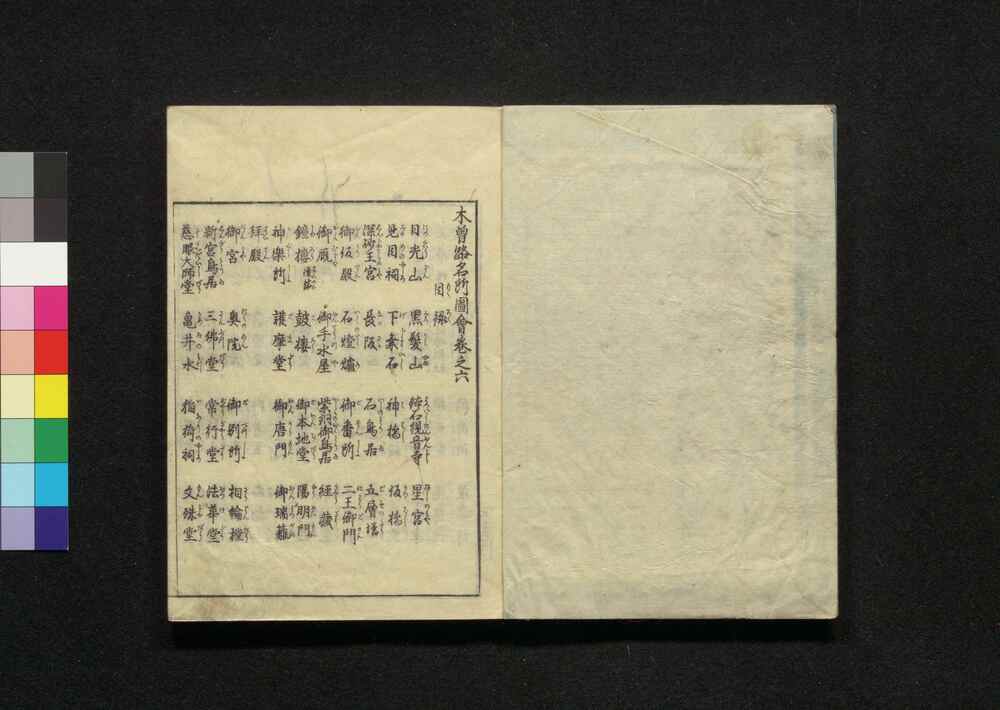 木曾路名所圖會卷之六
目録
日光山 黒髪山 鉢石観音寺 星宮
見目祠 下乗石 神橋 仮橋
深砂王宮 長阪 石鳥居 五層塔
御仮殿 石燈爐 御番所 二王御門
御厩 御手水屋 紫銅御鳥居 経蔵
鐘樓 鼓樓 御本地堂 陽明門
神楽所 護摩堂 御唐門 御瑞籬
拝殿
御宮 奥院 御別所 相輪橖
新宮鳥居 三佛堂 常行堂 法華堂
慈眼大師堂 亀井水 稲荷祠 文殊堂